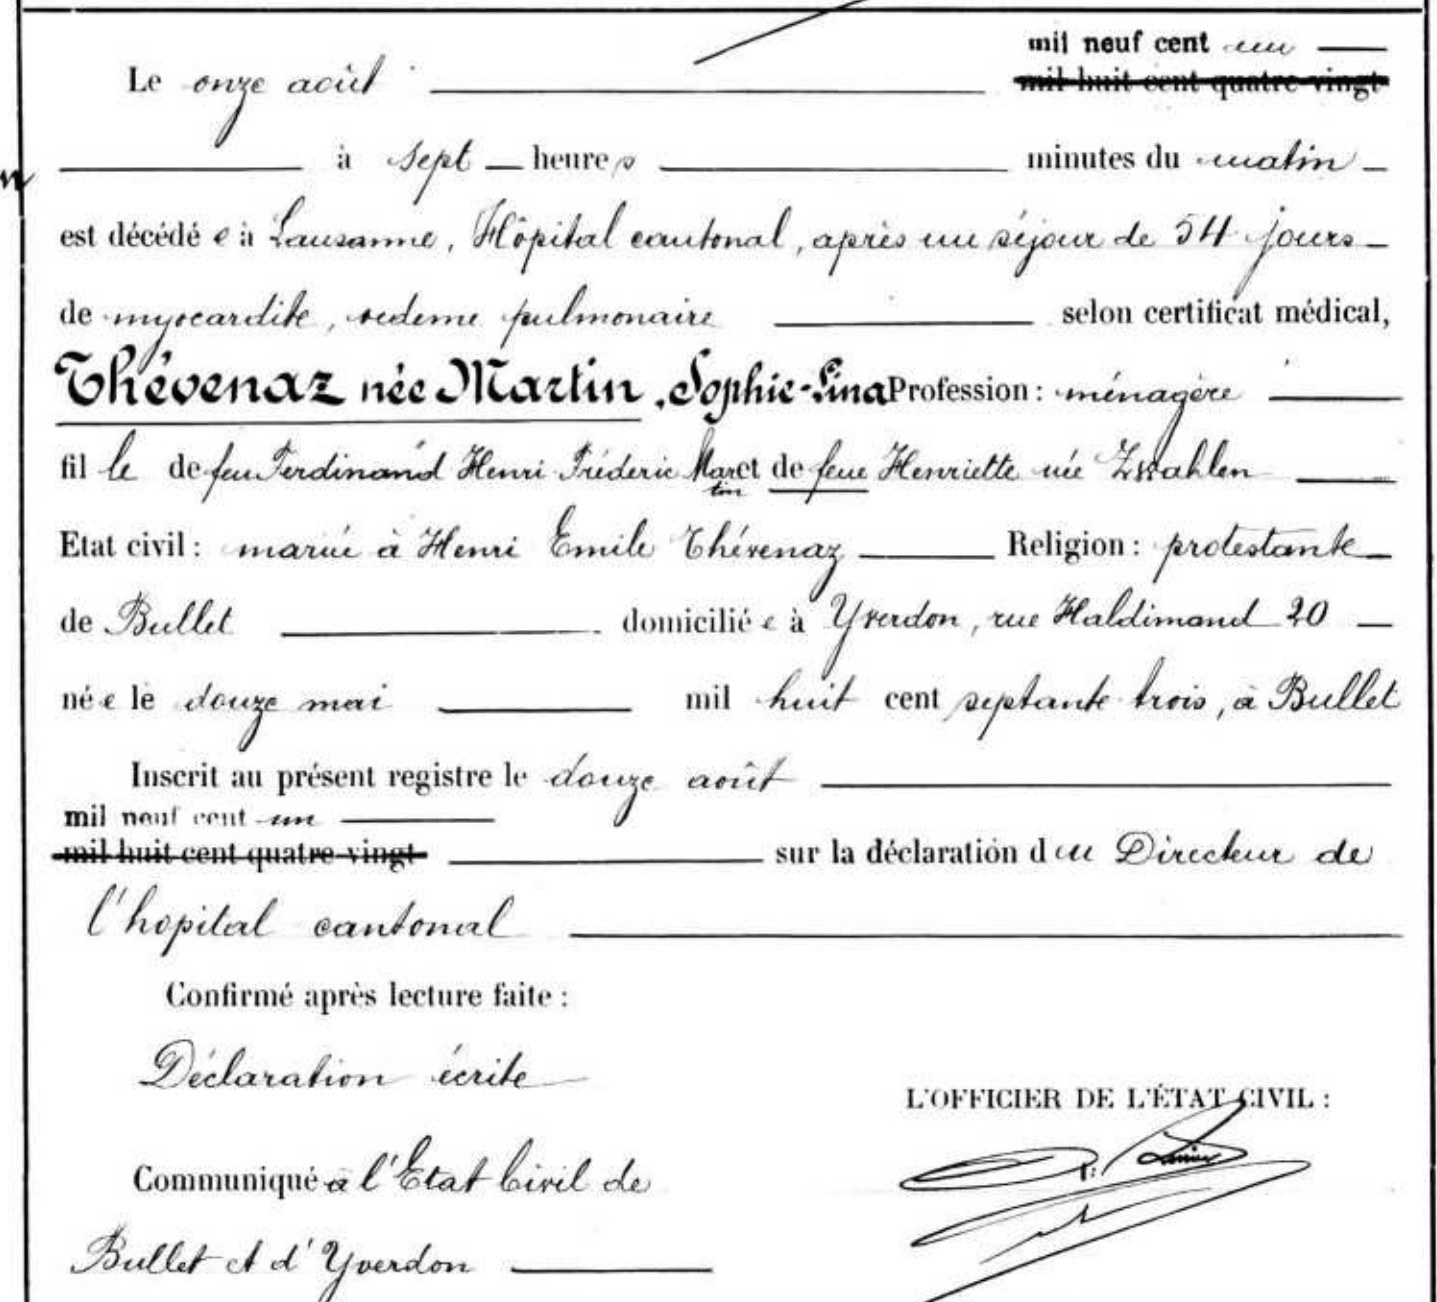 mil neuf cent un
Le onze août mil huit cent quatre-vingt
à sept heures minutes du matin
est décédée à Lausanne, Hôpital cantonal, après un séjour de 54 jours
de myocardite, oedeme pulmonaire selon certificat médical,
Thévenaz née Martin, Sophie-Lina Profession : ménagère
fille de feu Ferdinand Henri Fréderic Martin et de feue Henriette née Zwahlen
Etat civil : mariée à Henri Emile Thévenaz Religion : protestante
de Bullet domiciliée à Yverdon, rue Haldimand 20
née le douze mai mil huit cent septante trois, à Bullet
Inscrit au présent registre le douze août
mil neuf cent un
mil huit cent quatre-vingt sur la déclaration du Directeur de
l'hopital cantonal
Confirmé après lecture faite :
Déclaration écrite
L'OFFICIER DE L'ÉTAT CIVIL :
Communiqué à l'Etat Civil de
Bullet et d'Yverdon